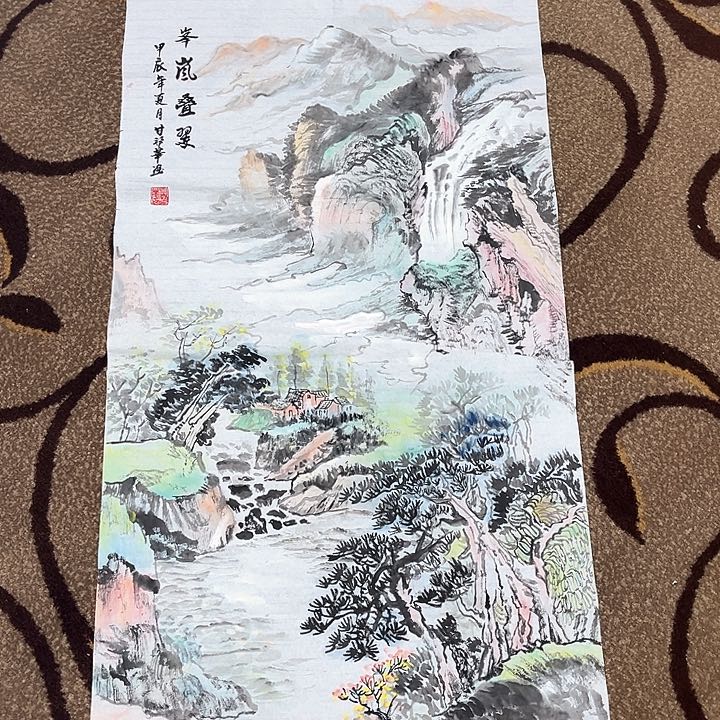 峯嵐叠翠
甲辰年夏月甘華画